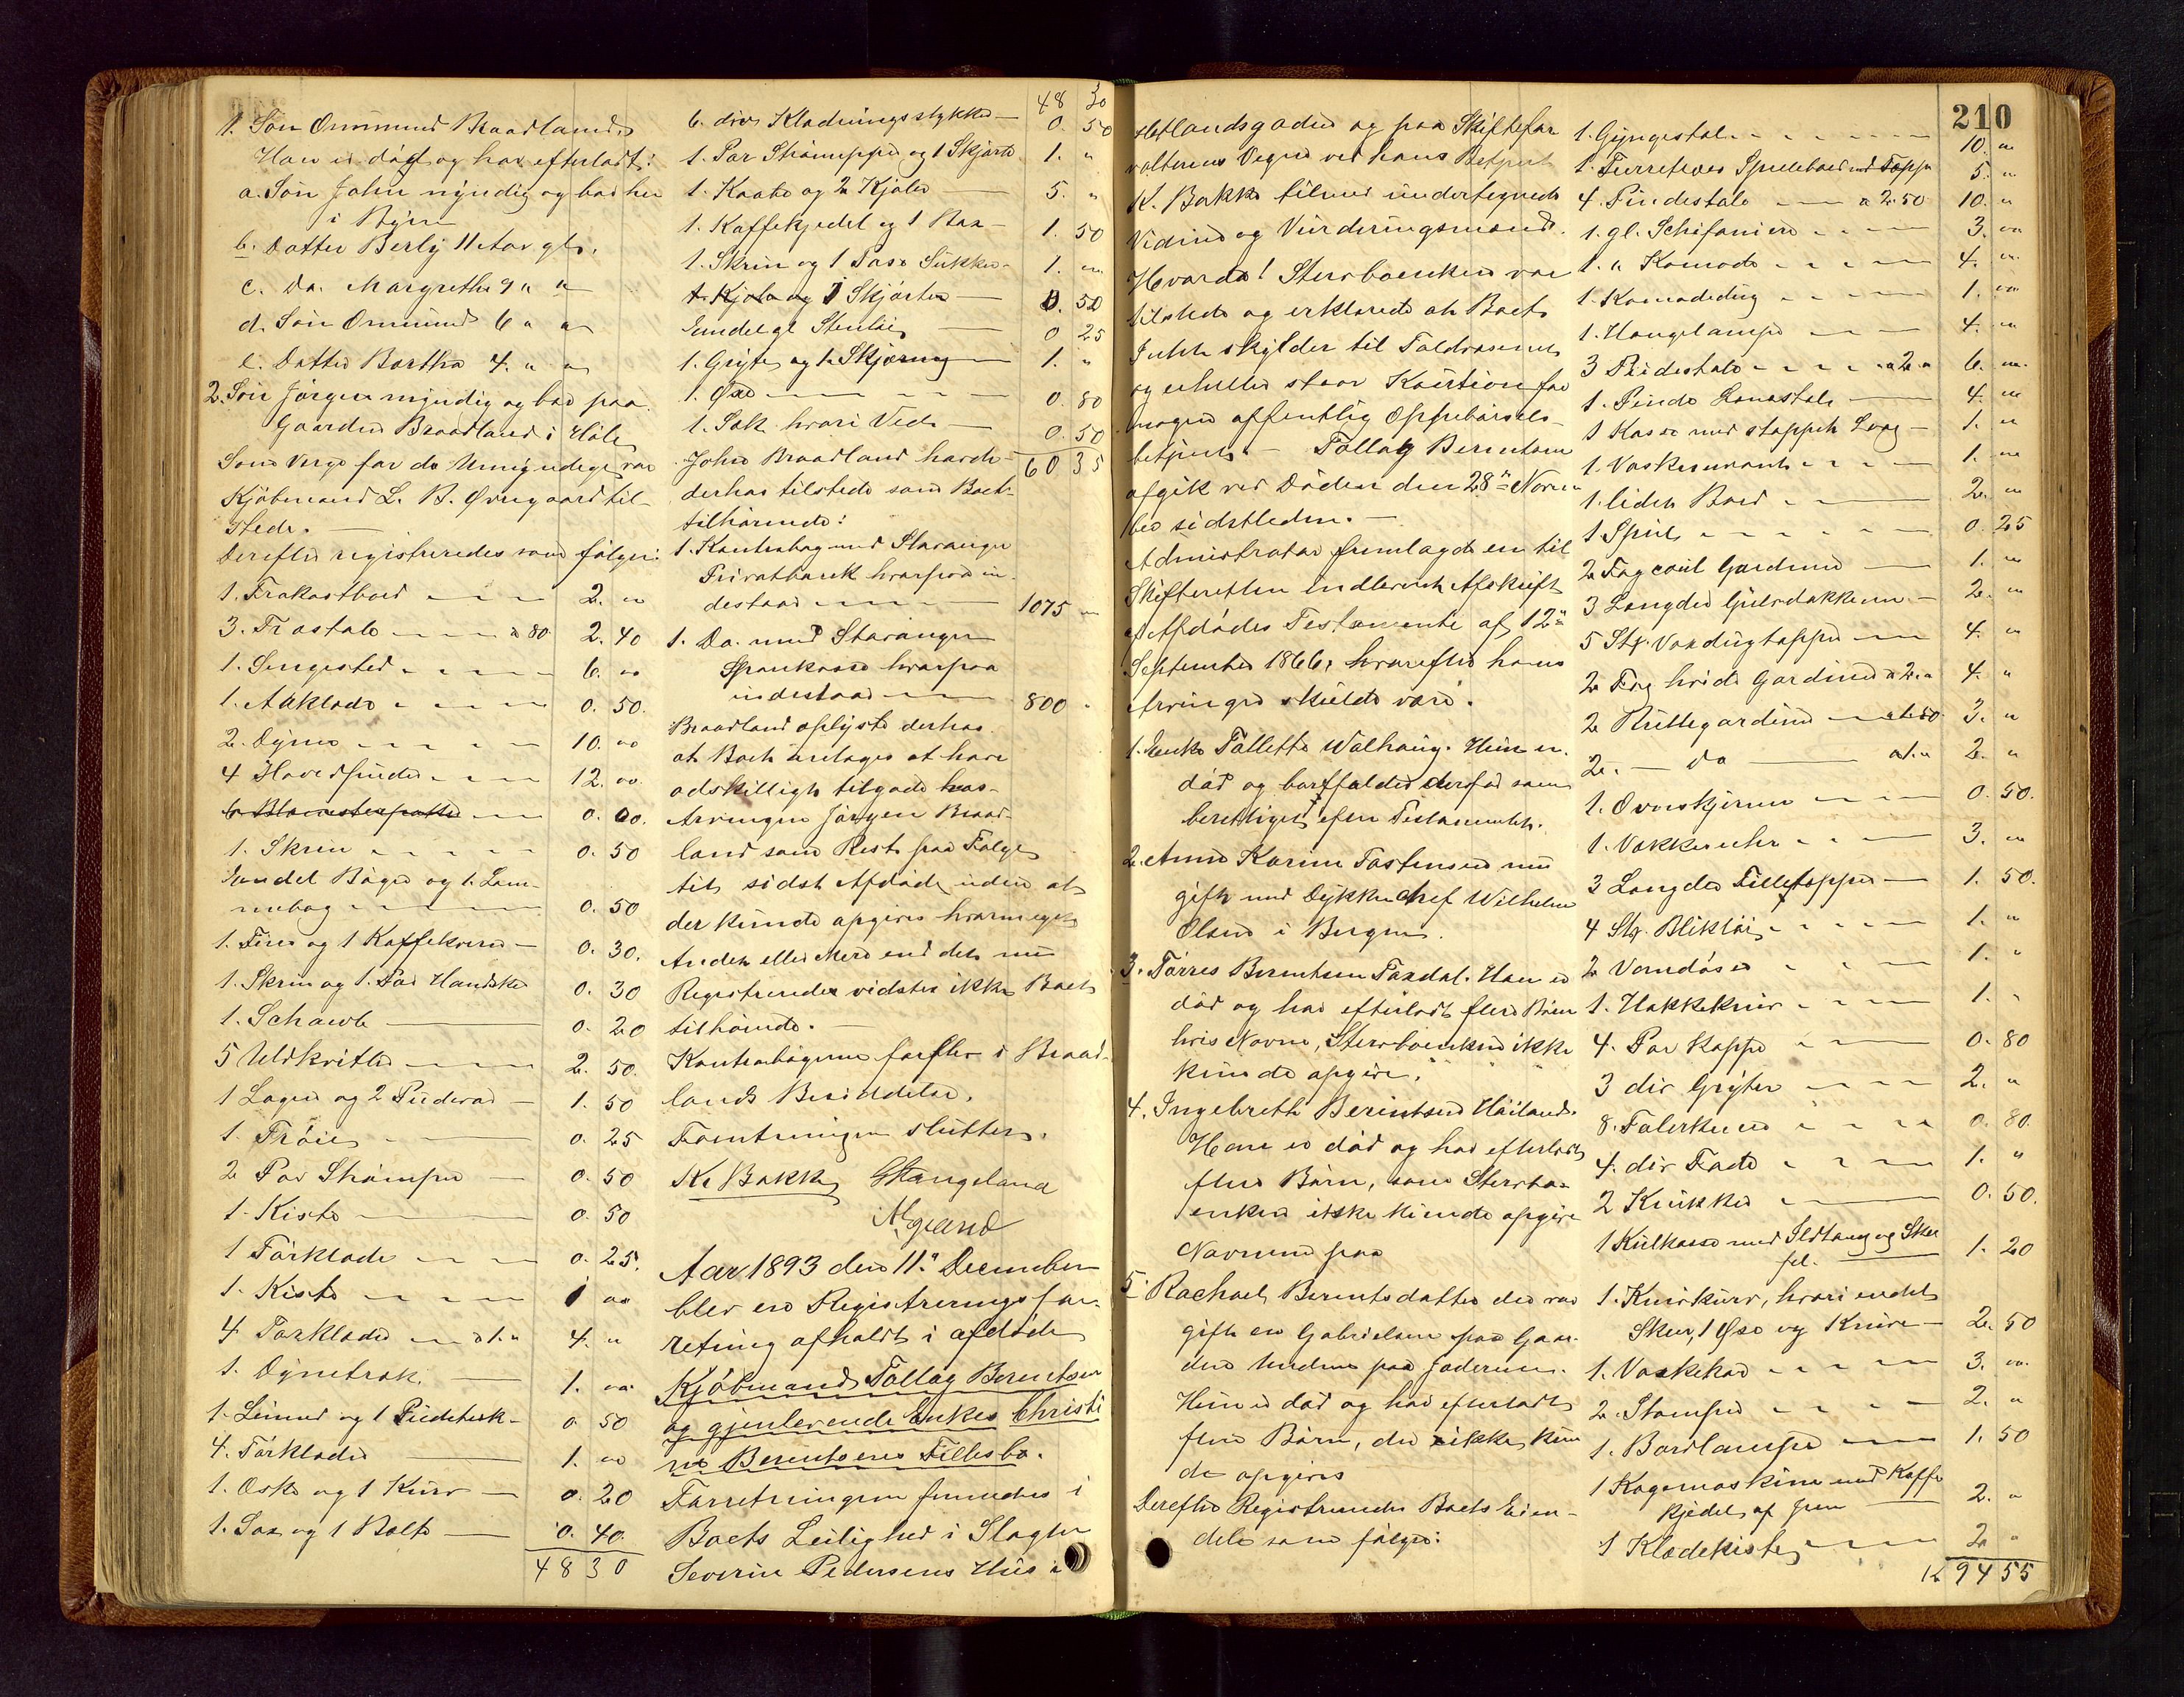 1. Søn Ommund Braadland.
Han er død og har efterladt:
a. Søn John myndig og bor her
i Byen
b. Datter Berly 11 Aar gl.
c. Do. Margrethe 9 " "
d. Søn Ommund 6 " "
e. Datter Bertha 4. " "
2. Søn Jørgen myndig og bor paa
Gaarden Braadland i Høle
Som Verge for de Umyndige var
Kjøbmand L. B. Øvregaard til-
stede. —
Derefter registreredes som følger:
1. Frokostbord 2. "
3. Træstole a 80 2. 40
1. Sengested 6. "
1. Aaklæde 0. 50.
2. Dyner 10. "
4 Hovedpuder 12. "
6 Blomsterpotter 0. 00.
1. Skrin 0. 50
Endel Bøger og 1. Lom-
mebog 0. 50
1. Fin og 1 Kaffekværn 0. 30.
1. Skrin og 1. Par Handsker 0. 30
1. Schawl 0. 20
5 Uldkvitler 2. 50.
1 Lagen og 2 Pudevar 1. 50
1. Trøie 0. 25
2 Par Strømper 0. 50
1. Kiste 0. 50
1 Forklæde 0. 25.
1. Kiste 1 "
4 Forklæder a 1. " 4. "
1. Dynetræk. 1. "
1. Linned og 1 Pudetræk 0. 50
4. Forklæder 1. "
1. Æske og 1 Kurv 0. 20
1. Sax og 1 Balte 0. 40.
48 30
48 30
6. divs Klædningsstykker 0. 50
1. Par Strømpper og 1 Skjørte 1. "
1. Kaabe og 2 Kjoler 5. "
1. Kaffekjedel og 1 Bax 1. 50
1. Skrin og 1 Pose Sukker 1. "
1. Kjole og 1 Skjørter 0. 50
Endel gl Stentøi 0 25
1. Gryte og 1. Skjæring 1. "
1. Øxe 0. 80
1. Sæk hvori Ved 0. 50
60 35
John Braadland havde
derhos tilstede som Boet
tilhørende:
1. Kontrabog med Stavanger
Privatbank hvorpaa in-
destaar 1075 "
1. Do. med Stavanger
Sparekasse hvorpaa
indestaar 800 "
Braadland oplyste derhos
at Boet antages at have
adskilligt tilgode hos
Arvingen Jørgen Braad-
land som Rest paa Følge
til sidst Afdøde uden at
der kunde opgives hvormeget
Andet eller Mere end det nu
Registrerede vidstes ikke Boet
tilhørende.
Kontrabøgerne forblev i Braad-
lands Besiddelse.
Forretningen sluttet.
K. Bakke GStangeland

Aar 1893 den 11te December
blev en Registreringsfor-
retning afholdt i afdøde
Kjøbmand Tollag Berentsen
og gjenlevende Enke Christi
ne Berentsens Fællesbo.
Forretningen fremmedes i
Boets Leilighed i Slagter
Severin Pedersens Hus i
210
Hetlandsgaden og paa Skiftefor
valterens Vegne ved hans Betjent
K. Bakke tilmed undertegnede
Vidner og Vurderingsmænd.
Hvorda! Sterboenken var
tilstede og erklærede at Boet
Intet skylder til Toldvæsenet
og enheller staar Kaution for
nogen offentlig Oppebørsels-
betjent. — Tollag Berentsen
afgik ved Døden den 28de Novem
ber sidstleden. —
Administrator fremlagde en til
Skifteretten indleveret Afskrift
af Afdødes Testamente af 12te
September 1866, hvorefter hans
Arvinger skulde være.
1. Enke Tallette Walhaug. Hun er
død og bortfalder derfor som
berettiget efter Testamentet.
2. Anne Karine Tostensen nu
gift med Dykkerchef Wilhelm
Olsen i Bergen.
3. Tørres Berentsen Taxdal. Han er
død og har efterladt flere Børn
hvis Navne, Sterboenken ikke
kunde opgive.
4. Ingebreth Berentsen Høiland.
Han er død og har efterladt
flere Børn, som Sterbo-
enken ikke kunde opgive
Navnene paa
5. Rachael Berentsdatter der var
gift en Gabrielsen paa Gaar-
den Undem paa Jæderen.
Hun er død og har efterladt
flere Børn, der ikke kun
de opgives
Derefter Registreredes Boets Eien-
dele som følger:
1. Gyngestol 10. "
1. Furretræes Spillebord med Tæppe 5. "
4. Pindestole a 2.50 10. "
1. gl. Schifoniere 3. "
1. " Komode 4. "
1. Komodedug 1. "
1. Hængelampe 4. "
3 Pindestole a 2. " 6. "
1. Pinde Lænestole 4. "
1 Kasse med stoppet Laag 1. "
1. Vaskeservant 1. "
1. liden Bord 2. "
1 Speil 0. 25
2 Fag coul Gardiner 1. "
3 Længder Gulvdækken 2. "
5 Stk. Voxdugtæpper 4. "
2 Fag hvide Gardiner a 2. " 4. "
2 Rullegardiner a 1.50 3. "
2. — do — a 1. " 2. "
1. Ovnskjerm 0. 50.
1. Vækkeruhr 3. "
3 Længder Filletæpper 1. 50.
4 Stk. Bliktøi 1. "
2 Vandøser 1. "
1. Hakkekniv 1. "
4. Par Kopper 0. 80
3 div Gryter 2. "
8. Talerkener 0. 80.
4. div Fade 1. "
2 Krukker 0. 50.
1 Kulkasse med Ildtang og Skuf
fel. 1. 20
1. Knivkurv, hvori endel
Skeer, 1 Øse og Knive 2. 50
1. Vaskekar 3. "
2. Stamper 2. "
1. Bordlampe 1. 50
1 Kogemaskine med Kaffe
kjedel af Jern 2. "
1 Klædekiste 2. "
94 55